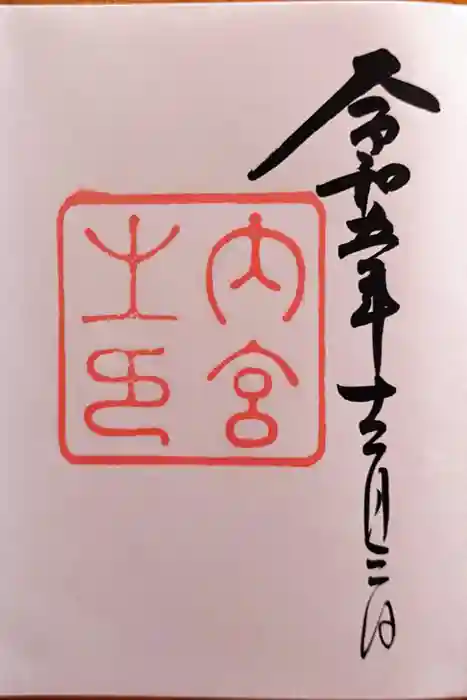 令和五年十二月三日
内宮
之印